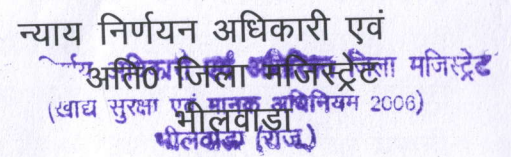 न्याय निर्णयन अधिकारी एवं
अति0 जिला मजिस्ट्रेट
जिला मजिस्ट्रेट
(खाद्य सुरक्षा एवं मानक अधिनियम 2006)
भीलवाडा
भीलवाडा (राज.)